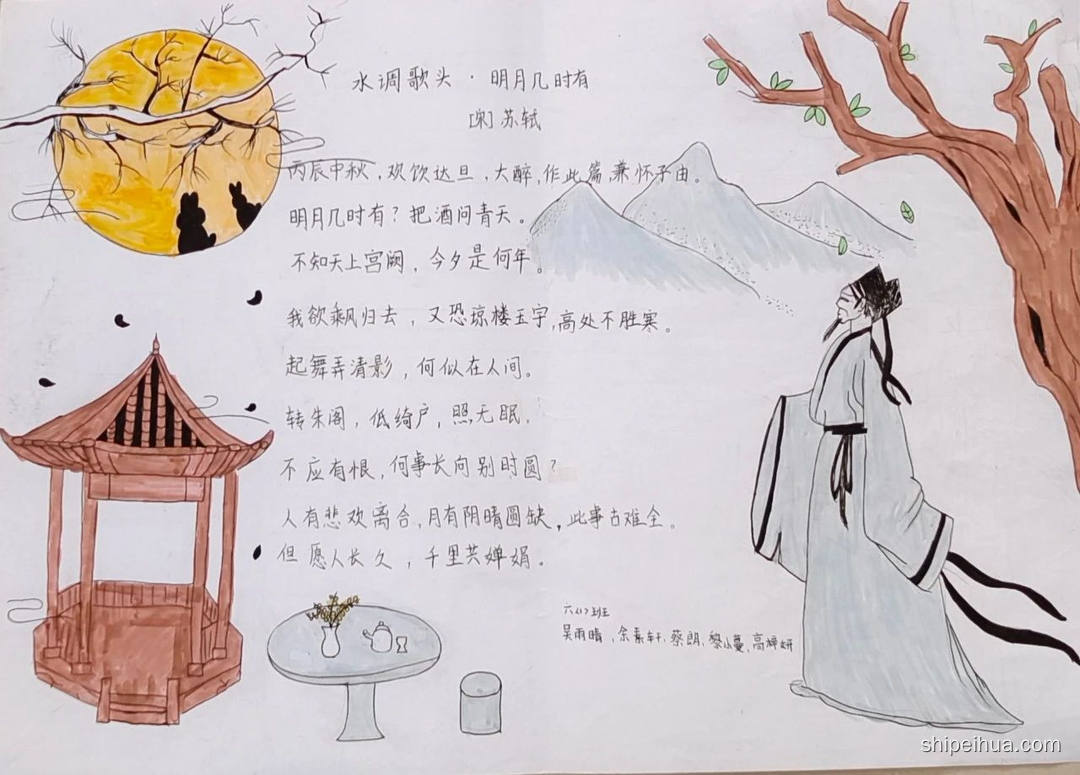 水调歌头·明月几时有
[宋]苏轼
丙辰中秋,欢饮达旦,大醉,作此篇,兼怀子由。
明月几时有?把酒问青天。
不知天上宫阙,今夕是何年。
我欲乘风归去,又恐琼楼玉宇,高处不胜寒。
起舞弄清影,何似在人间。
转朱阁,低绮户,照无眠。
不应有恨,何事长向别时圆?
人有悲欢离合,月有阴晴圆缺,此事古难全。
但愿人长久,千里共婵娟。
六(1)班
吴雨晴,余素轩,蔡朗,黎小蔓,高
shipeihua.com